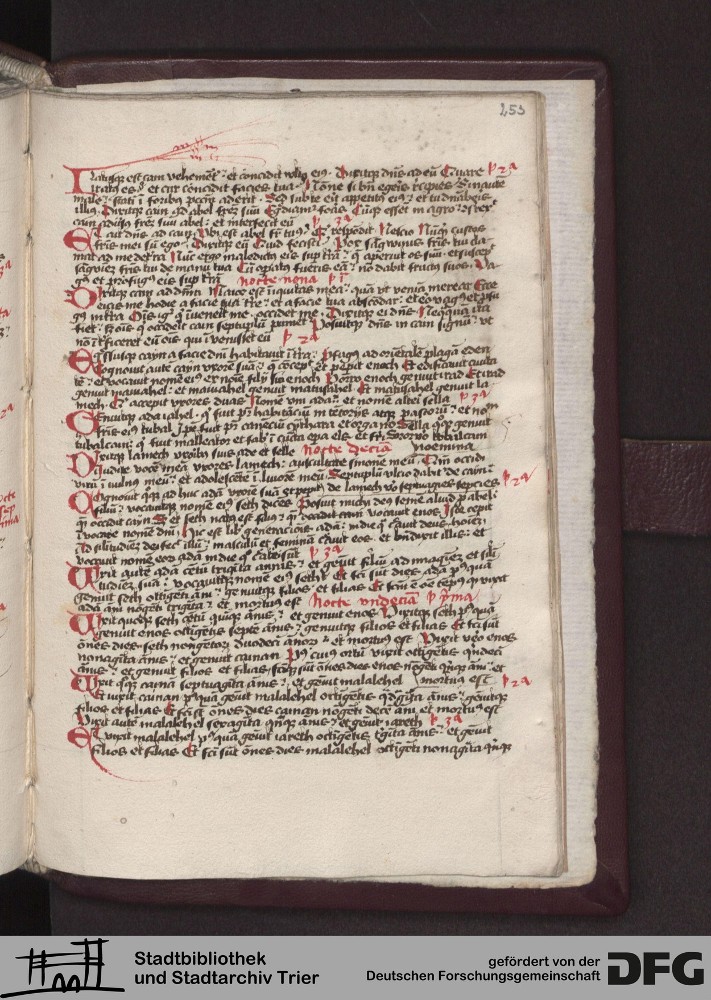 253
Iratusque est cain vehement et concidit vultus eius Dixitque dns ad eu Quare p 2a
iratus es et cur concidit facies tua None si bn egeris recipies Sin aute
male stati i foribus peccm aderit Sed subte erit appetitus eius et tu dnaberis
illius Dixitque cain ad abel frem suu Egrediamur foras Cumque essent in agro
cain adversus frem suu abel et interfecit eu p 3a
Et ait dns ad cain Ubi est abel fr tuus Qui respondit Nescio Nuquid custos
fris mei su ego Dixitque eu Quid fecisti Vox sagwinis fris tui cla
mat ad me de terra Nuc ergo maledictus eris sup terra que aperuit os suu et suscepit
sagwine fris tui de manu tua Cu opatus fueris eu no dabit fructus suos Va
gus et profugus eris sup terra nocte nona p
Dixitque cain ad dnm Maior est iniquitas mea qua ut venia merear Ecce
eicis me hodie a facie tua tre et a facie tua abscodar et ero vagus et profu
gus in terra Ois igit qui invenerit me occidet me Dixitque ei dns Nequaqua ita
fiet sed ois qui occiderit cain septuplu punietur Posuitque dns in cain signu ut
no interficeret eu ois qui invenisset eu p 2a
Egressusque cayn a facie dni habitavit i tra Profugus ad orientale plaga eden
Cognovit aute cayn uxore sua que cocepit et peperit enoch Et edificavit civita
te et vocavit nome eius ex noie filij sui enoch Porro enoch genuit irad Et irad
genuit maviahel et maviahel genuit matusahel Et matusahel genuit la
mech Qui accepit uxores duas Nome uni ada et nome alteri sella p 3a
Genuitque ada iabel qui fuit pr habitaciu in tetorijs atque pastoru et nom
fris eius tubal Ipse fuit pr canenciu cythara et organo Sella quoque genuit
tubalcain qui fuit malleator et faber i cucta opa eris et feri Soror vero tobalcain
Dixitque lamech uxoribus suis ade et selle Nocte decima noemina
Audite voce mea uxores lamech auscultate smone meu Qm occidi
viru i vulnus meu et adolescete i livore meu Septuplu ulcio dabitur de cain
Cognovit quoque adhuc ada uxore sua et peperit de lamech vo septuagies sepcies p 2a
filiu vocavitque nome eius seth dicens Posuit michi deus seme aliud p abel
que occidit cayn Sed et seth natus est filius que vocavit enos Iste cepit
ivocare nome dni Hic est liber generacionis ada in die qua creavit deus hoiem
Ad similitudine dei fecit illu masculu et femina creavit eos et bndixit illis et
vocavit nome eoru ada in die quo creati sut p 3a
Vixit aute ada cetu triginta annis et genuit filiu ad imagine et sili
tudine sua vocavitque nome eius seth Et fci sut dies ada postqua
genuit seth octigeti ani genuitque filios et filias Et fcm e oe tepus quo vixit
ada ani nogeti triginta et mortuus est Nocte undecima p prima
Vixit quoque seth cetu quique anis et genuit enos Vixitque seth postqua
genuit enos octigetis septe anis genuitque filios et filias Et fci sut
omes dies seth nongetoru duodeci anoru et mortuus est Vixit vero enos
nonaginta anis et genuit cainan Post cuius ortu vixit octigetis quideci
anis et genuit filios et filias factique sut omes dies enos nogeti quinque ani et
Vixit quoque cainan septuaginta anis et genuit malalehel mortuus est p 2a
Et vixit cainan postqua genuit malalehel octigetis quadraginta anis genuitque
filios et filias Et fci sut omes dies cainan nogeti dece ani et mortuus est
Vixit aute malalehel sexaginta quinque anis et genuit iareth p 3a
Et vixit malalehel postqua genuit iareth octigetis triginta anis et genuit
filios et filias Et fci sut omes dies malalehel octigeti nonaginta quinque
Stadtbibliothek
und Stadtarchiv Trier
gefördert von der
Deutschen Forschungsgemeinschaft
DFG